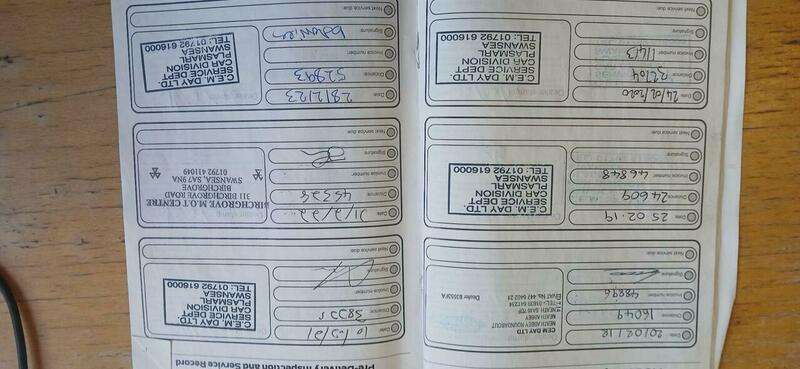 Date: 20/02/18
Distance: 16049
Invoice number:
Signature:
Next service due:
CEM DAY LTD
NEATH ABBEY ROUNDABOUT
NEATH ABBEY
Date: 25.02.19
Distance: 24609
Invoice number: 46848
Signature:
Next service due:
C.E.M. DAY LTD.
SERVICE DEPT
CAR DIVISION
PLASMARL
SWANSEA
TEL: 01792 616000
Date: 24/02/2020
Distance: 32704
Invoice number: 11143
Signature:
Next service due:
C.E.M. DAY LTD.
SERVICE DEPT
CAR DIVISION
PLASMARL
SWANSEA
TEL: 01792 616000
Pre-Delivery Inspection and Service Record
Date:
Distance:
Invoice number:
Signature:
Next service due:
C.E.M. DAY LTD.
SERVICE DEPT
CAR DIVISION
PLASMARL
SWANSEA
TEL: 01792 616000
Date: 21/2/22
Distance: 45328
Invoice number:
Signature:
Next service due:
BIRCHGROVE M.O.T CENTRE
311 BIRCHGROVE ROAD
BIRCHGROVE
SWANSEA, SA7 9NA
01792 411049
Date: 28/2/23
Distance: 52893
Invoice number:
Signature:
Next service due:
C.E.M. DAY LTD.
SERVICE DEPT
CAR DIVISION
PLASMARL
SWANSEA
TEL: 01792 616000